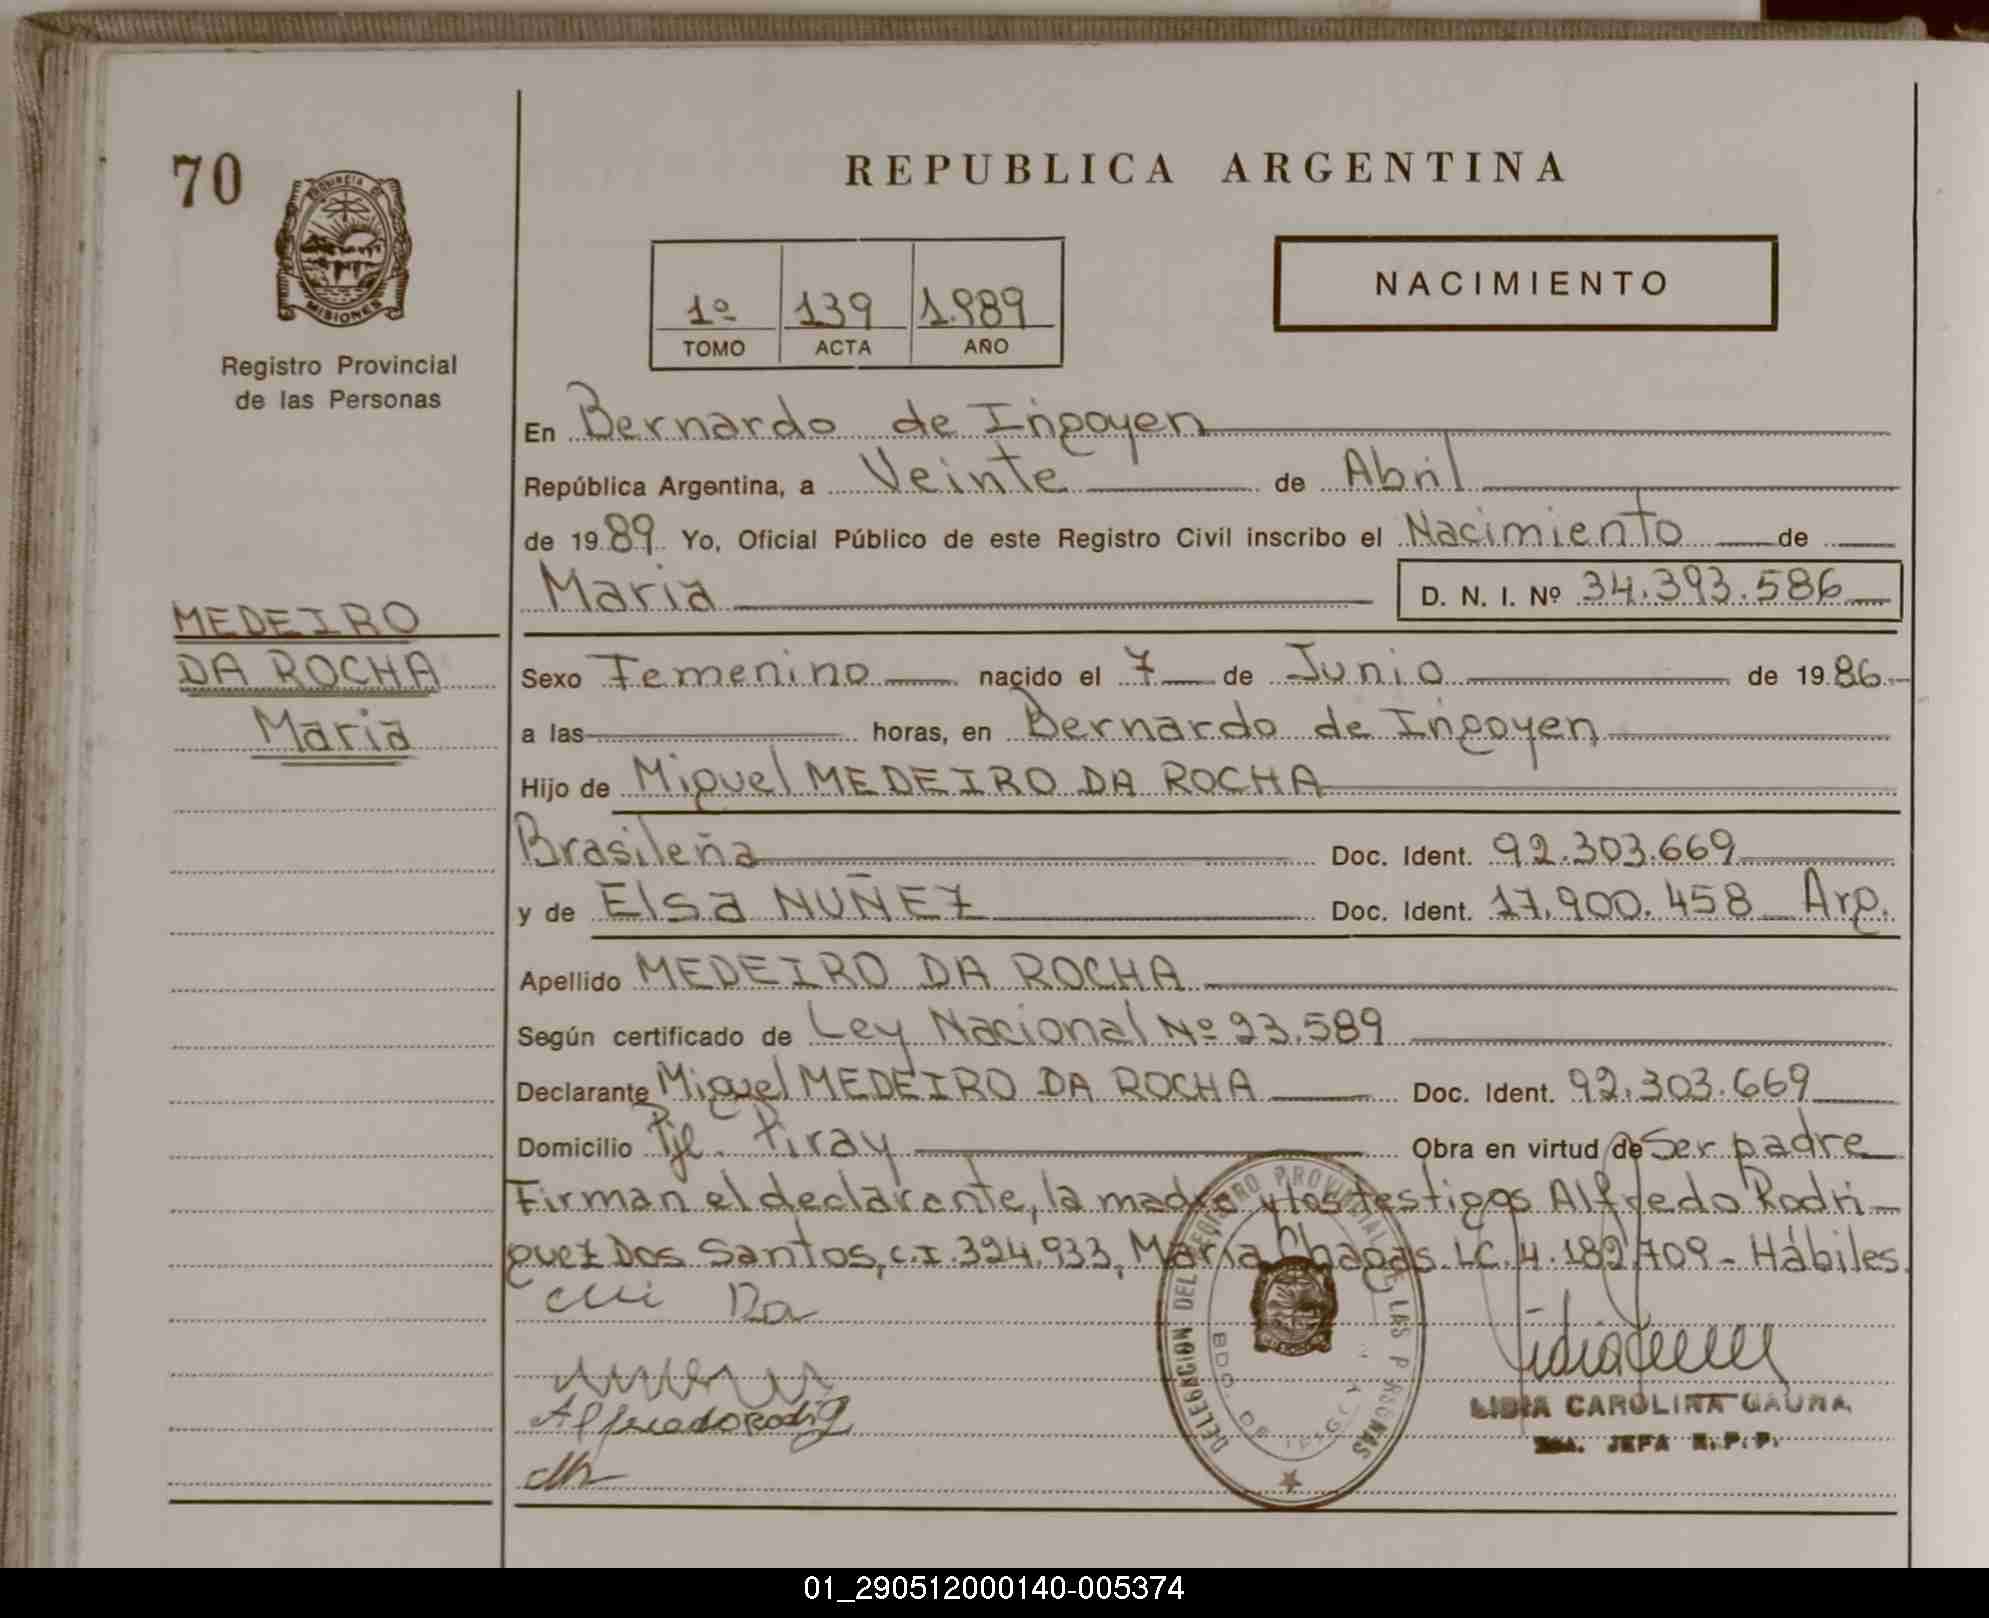 70
PROVINCIA DE
MISIONES
Registro Provincial
de las Personas
MEDEIRO
DA ROCHA
Maria
REPUBLICA ARGENTINA
1º 139 1.989
TOMO ACTA AÑO
NACIMIENTO
En Bernardo de Irigoyen
República Argentina, a Veinte de Abril
de 1989 Yo, Oficial Público de este Registro Civil inscribo el Nacimiento de
Maria D. N. I. Nº 34.393.586
Sexo Femenino nacido el 7 de Junio de 1986
a las horas, en Bernardo de Irigoyen
Hijo de Miguel MEDEIRO DA ROCHA
Brasileña Doc. Ident. 92.303.669
y de Elsa NUÑEZ Doc. Ident. 17.900.458 Arg.
Apellido MEDEIRO DA ROCHA
Según certificado de Ley Nacional Nº 23.589
Declarante Miguel MEDEIRO DA ROCHA Doc. Ident. 92.303.669
Domicilio Pje. Piray Obra en virtud de Ser padre
Firman el declarante, la madre y los testigos Alfredo Rodri-
guez Dos Santos, C.I. 324.933, María Chagas. LC. 4.182.709 - Hábiles.
Alfredo Rodrig
DELEGACION DEL REGISTRO PROVINCIAL DE LAS PERSONAS
BDO. DE IRIGOYEN
LIDIA CAROLINA GAUNA
JEFA R.P.P.
01_290512000140-005374